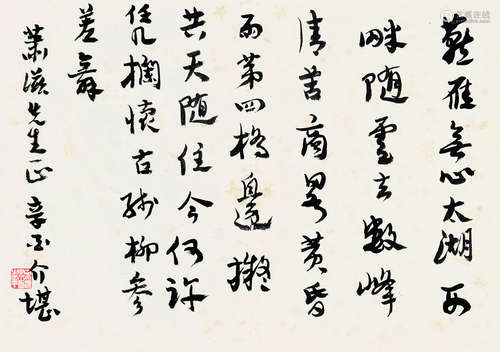 燕雁無心太湖西
畔随雲去數峰
清苦商畧黄昏
雨第四橋邊擬
共天随住今何許
凭欄懷古殘柳參
差舞
先生正 章石介堪